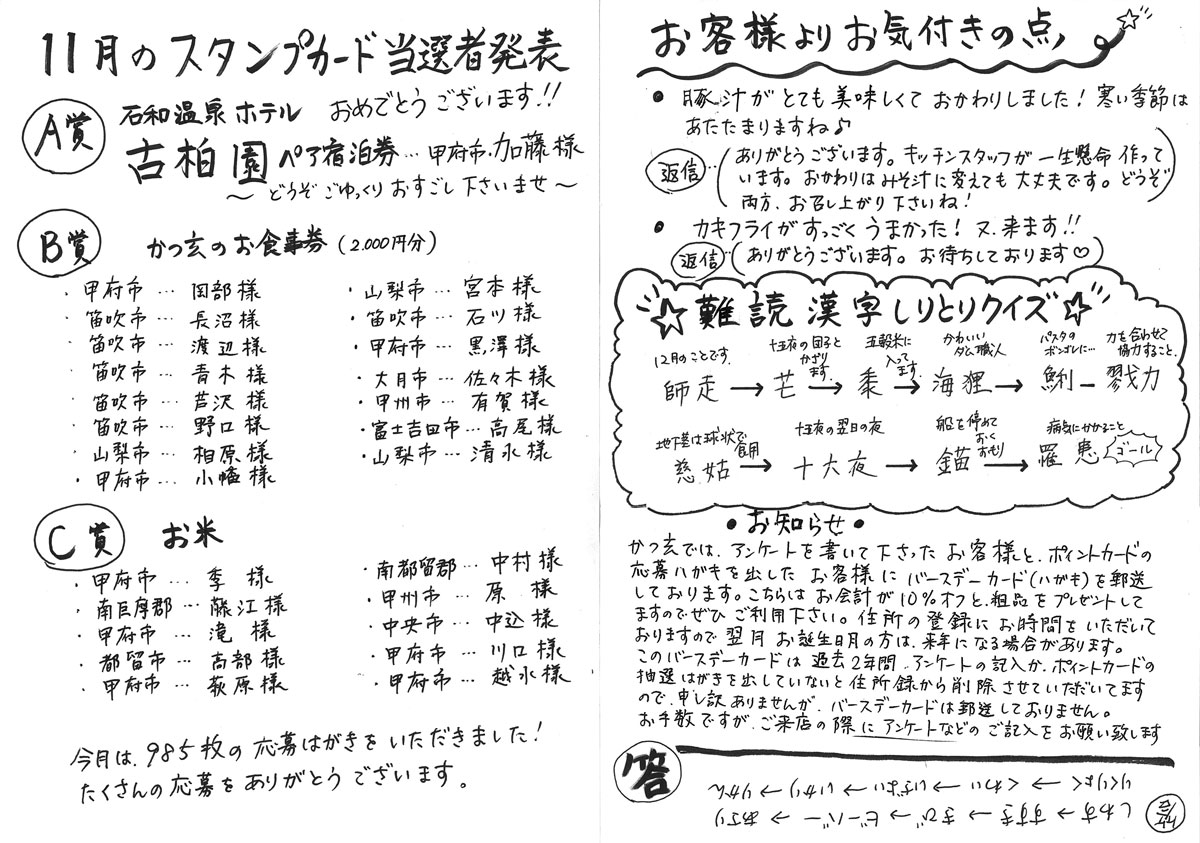 11月のスタンプカード当選者発表
A賞
石和温泉ホテル おめでとうございます!!
古柏園 ペア宿泊券…甲府市・加藤様
〜どうぞごゆっくりおすごし下さいませ〜
B賞 かつ玄のお食事券 (2.000円分)
・甲府市…岡部様
・笛吹市…長沼様
笛吹市…渡辺様
・笛吹市…青木様
・笛吹市…芦沢様
・笛吹市…野口様
・山梨市…相原様
・甲府市…小幡様
・山梨市…宮本様
・笛吹市…石川様
・甲府市…黒澤様
・大月市…佐々木様
・甲州市…有賀様
・富士吉田市…高尾様
・山梨市…清水様
C賞 お米
・甲府市…季様
・南巨摩郡…藤江様
・甲府市…滝様
・都留市…高部様
・甲府市…萩原様
・南都留郡…中村様
・甲州市…原様
・中央市…中込様
・甲府市…川口様
・甲府市…越水様
今月は、985枚の応募はがきをいただきました!
たくさんの応募をありがとうございます。
お客様よりお気付きの点
● 豚汁がとても美味しくておかわりしました!寒い季節は
あたたまりますね♪
返信…(ありがとうございます。キッチンスタッフが一生懸命作って
います。おかわりはみそ汁に変えても大丈夫です。どうぞ
両方、お召し上がり下さいね!)
● カキフライがすっごくうまかった!又、来ます!!
返信…(ありがとうございます。お待ちしております♡)
☆難読漢字しりとりクイズ☆
12月のことです。
師走→
十五夜の団子と
かざります。
芒→
五穀米に
入ってます。
黍→
かわいい
ダム職人
海狸→
パスタの
ボンゴレに…
鯏→
力を合わせて
協力すること。
戮力
地下茎は球状で
食用
慈姑→
十五夜の翌日の夜
十六夜→
船を停めて
おく
おもり
錨→
病気にかかること
罹患
ゴール
●お知らせ●
かつ玄では、アンケートを書いて下さったお客様と、ポイントカードの
応募ハガキを出したお客様にバースデーカード(ハがき)を郵送
しております。こちらはお会計が10%オフと、粗品をプレゼントして
ますのでぜひご利用下さい。住所の登録にお時間をいただいて
おりますので翌月お誕生日月の方は、来年になる場合があります。
このバースデーカードは過去2年間、アンケートの記入か、ポイントカードの
抽選はがきを出していないと住所録から削除させていただいてます
ので、申し訳ありませんが、バースデーカードは郵送しておりません。
お手数ですが、ご来店の際にアンケートなどのご記入をお願い致します
答
しわす→すすき→きび→ビーバー→あさり
りくりょく→くわい→いざよい→いかり→りかん